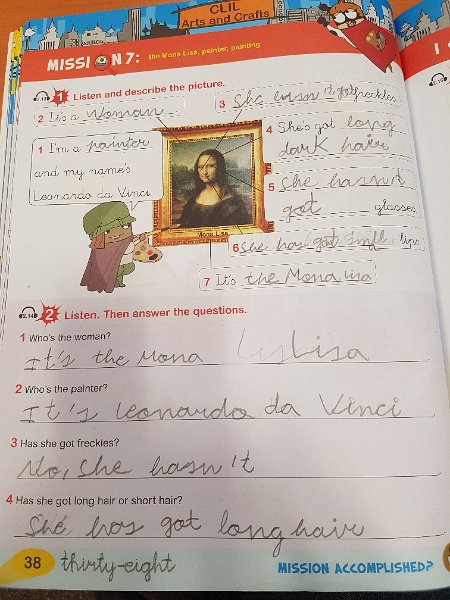 CLIL
Arts and Crafts
MISSION 7: the Mona Lisa, painter, painting
1 Listen and describe the picture.
2 It's a woman
3 She hasn't got freckles
1 I'm a painter
and my name's
Leonardo da Vinci
4 She's got long
dark hair
5 She hasn't
got glasses
Mona Lisa
6 She has got small lips
7 It's the Mona Lisa
2 Listen. Then answer the questions.
1 Who's the woman?
It's the Mona Lisa
2 Who's the painter?
It's Leonardo da Vinci
3 Has she got freckles?
No, she hasn't
4 Has she got long hair or short hair?
She has got long hair
38 thirty-eight
MISSION ACCOMPLISHED?